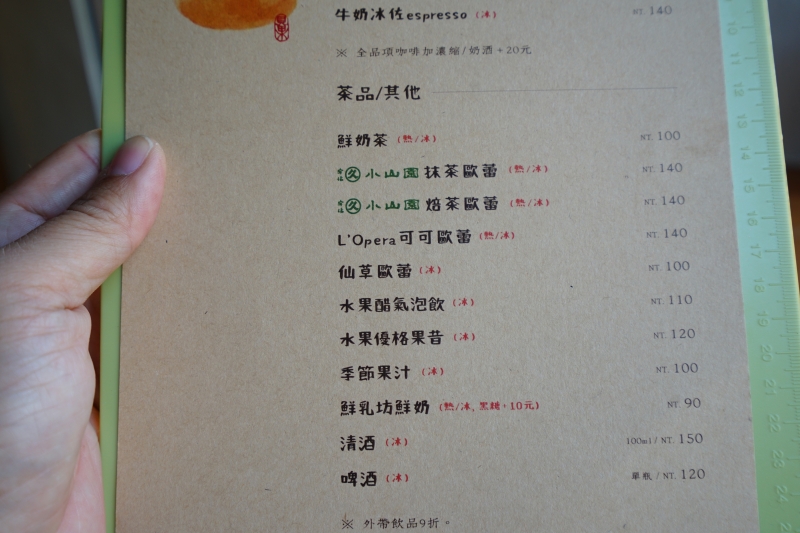 牛奶冰佐espresso (冰) NT. 140
※ 全品項咖啡加濃縮/奶酒+20元
茶品/其他
鮮奶茶 (熱/冰) NT. 100
小山園 抹茶歐蕾 (熱/冰) NT. 140
小山園 焙茶歐蕾 (熱/冰) NT. 140
L'Opera可可歐蕾 (熱/冰) NT. 140
仙草歐蕾 (冰) NT. 100
水果醋氣泡飲 (冰) NT. 110
水果優格果昔 (冰) NT. 120
季節果汁 (冰) NT. 100
鮮乳坊鮮奶 (熱/冰, 黑糖+10元) NT. 90
清酒 (冰) 100ml / NT. 150
啤酒 (冰) 單瓶 / NT. 120
※ 外帶飲品9折。